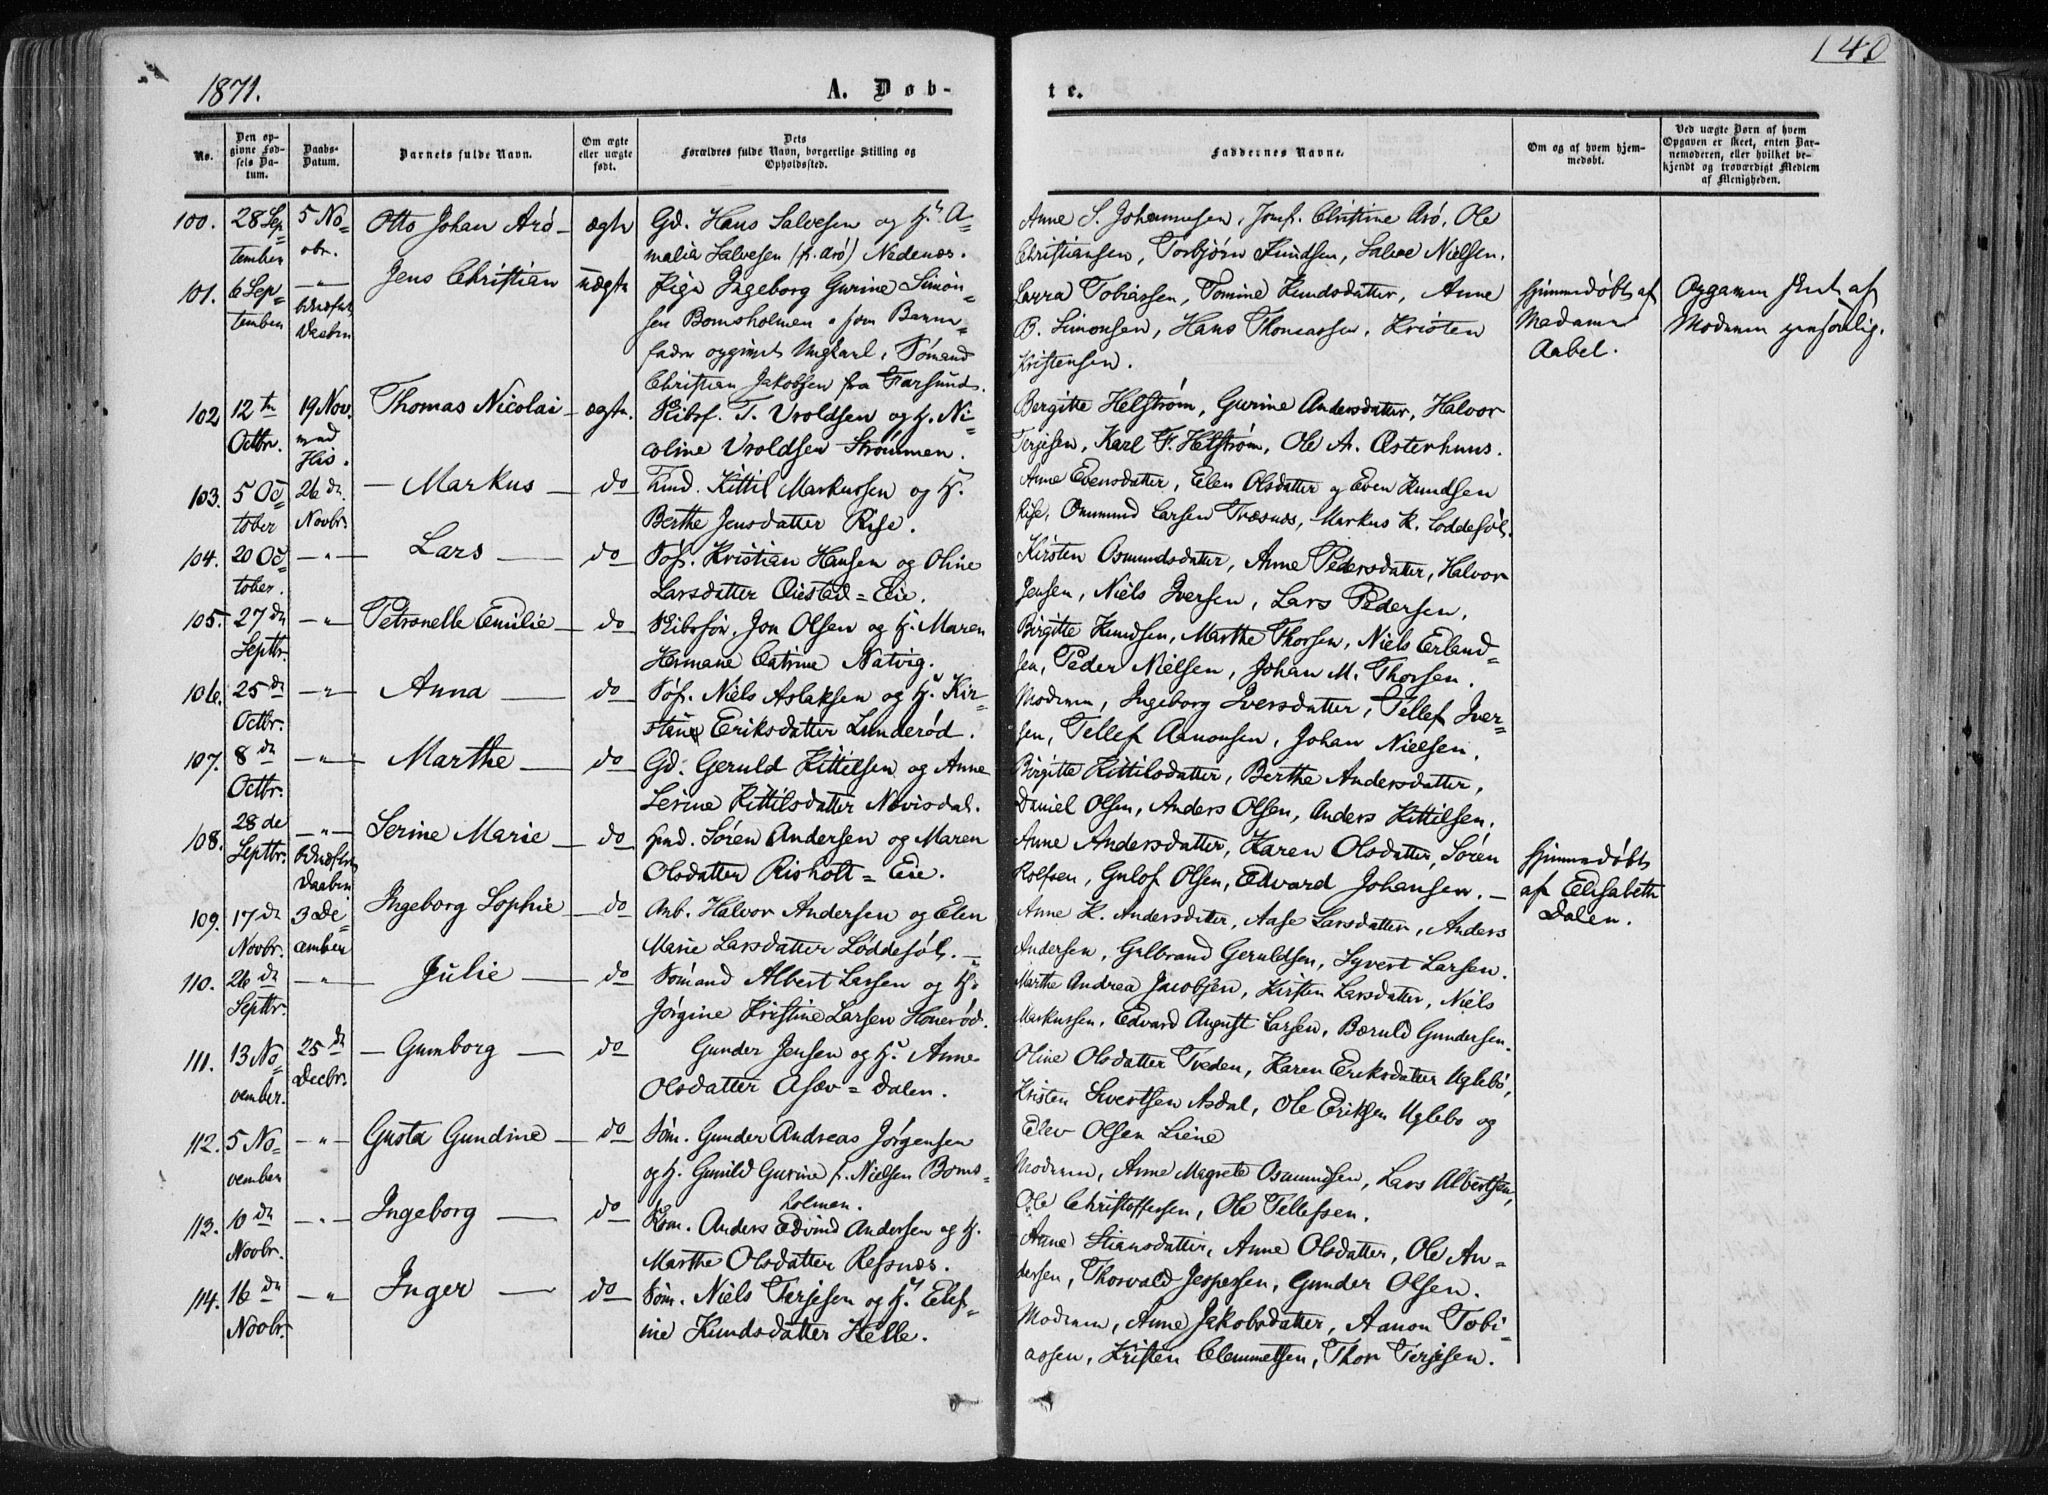 140
1871.
A. Døb-
te.
No.
Den op-
givne Fød-
sels Da-
tum.
Daabs-
Datum.
Barnets fulde Navn.
Om ægte
eller uægte
født.
Dets
Forældres fulde Navn, borgerlige Stilling og
Opholdssted.
Faddernes Navne.
Om og af hvem hjem-
medøbt.
Ved uægte Børn af hvem
Opgaven er skeet, enten Bar-
nemoderen, eller hvilket be-
kjendt og troværdigt Medlem
af Menigheden.
100. 28 Sep-
tember
5 No-
br.
Otto Johan Arö
ægte
Gd. Hans Salvesen og H. A-
malia Salvesen (f. Arö) Nedenæs.
Anne S. Johannesen, Jomf. Christine Arö, Ole
Christiansen, Torbjörn Knudsen, Salve Nielsen.
101. 6 Sep-
tember
— " —
Daaben
Jens Christian
uægte
Pige Ingeborg Gurine Simon-
sen Bomsholmen, som Barne-
fader opgivet Ungkarl, Sömand
Christian Jakobsen fra Farsund.
Tobiassen, Tomine Knudsdatter, Anne
B. Simonsen, Hans Thomassen, Kristen
Kristensen.
Hjemmedøbt af
Madame
Aabel.
Opgaven skeet af
Moderen personlig.
102. 12te
Octbr.
19 Nov.
ved
His.
Thomas Nicolai
ægte.
Skibsf. T. Vroldsen og H. Ni-
coline Vroldsen Strömmen.
Bergitte Helström, Gurine Andersdatter, Halvor
Terjesen, Karl F. Helström, Ole A. Österhuus.
103. 5 Oc-
tober
26 de
Novbr.
Markus
do
Kittil Markussen og H.
Berthe Jensdatter Rise.
Anne Evensdatter, Elen Olsdatter og Even Knudsen
Rise, Ommund Larsen Træsnæs, Markus K. Löddesöl.
104. 20 Oc-
tober.
— " —
Lars
do
Söf. Kristian Hansen og Oline
Larsdatter Öiestad=Eie.
Kirsten Osmundsdatter, Anne Pedersdatter, Halvor
Jensen, Niels Iversen, Lars Pedersen.
105. 27 de
Septbr.
— " —
Petronelle Emilie
do
Skibsför. Jon Olsen og H. Maren
Hermane Catrine Natvig.
Birgitte Knudsen, Marthe Thorsen, Niels Erland-
sen, Peder Nielsen, Johan M. Thorsen.
106. 25 de
Octbr.
— " —
Anna
do
Söf. Niels Aslaksen og H. Kir-
stine Eriksdatter Lunderöd.
Moderen, Ingeborg Iversdatter, Tellef Iver-
sen, Tellef Aanonsen, Johan Nielsen.
107. 8 de
Octbr.
— " —
Marthe
do
Gd. Geruld Kittilsen og Anne
Serine Kittilsdatter Növisdal.
Birgitte Kittilsdatter, Berthe Andersdatter,
Daniel Olsen, Anders Olsen, Anders Kittilsen.
108. 28 de
Septbr.
— " —
Daaben
Serine Marie
do
Hmd. Sören Andersen og Maren
Olsdatter Risholt=Eie.
Anne Andersdatter, Karen Olsdatter, Sören
Rolfsen, Gulof Olsen, Edvard Johansen. —
Hjemmedøbt
af Elisabeth
Dalen.
109. 17 de
Novbr.
3 De-
cember
Ingeborg Sophie
do
Arb. Halvor Andersen og Elen
Marie Larsdatter Löddesöl. —
Anne K. Andersdatter, Aase Larsdatter, Anders
Andersen, Gulbrand Geruldsen, Syvert Larsen.
110. 26 de
Septbr.
— " —
Julie
do
Sömand Albert Larsen og H.
Jörgine Kristine Larsen Honeröd.
Marthe Andrea Jacobsen, Kirsten Larsdatter, Niels
Markussen, Edvard August Larsen, Bæruld Gundersen.
111. 13 No-
vember.
25 de
Decbr.
Gumborg
do
Gunder Jensen og H. Anne
Olsdatter Asæv=Dalen.
Oline Olsdatter Tveden, Karen Eriksdatter Uglebö,
Kristen Sivertsen Asdal, Ole Eriksen Uglebo og
Elev Olsen Liene
112. 5 No-
vember
— " —
Gusta Gundine
do
Söm. Gunder Andreas Jörgensen
og H. Gunild Gurine f. Nielsen Boms-
holmen.
Moderen, Anne Magrete Osmundsen, Lars Albertsen,
Ole Christoffersen, Ole Tellefsen.
113. 10 de
Novbr.
— " —
Ingeborg
do
Söm. Anders Edvind Andersen og H.
Marthe Olsdatter Refsnæs.
Anne Stiansdatter, Anne Olsdatter, Ole An-
dersen, Thorvald Jespersen, Gunder Olsen.
114. 16 de
Novbr.
— " —
Inger
do
Söm. Niels Tarjesen og H. Elef-
ine Knudsdatter Helle.
Moderen, Anne Jakobsdatter, Aanon Tobi-
assen, Kristen Clemmetsen, Thor Terjesen.